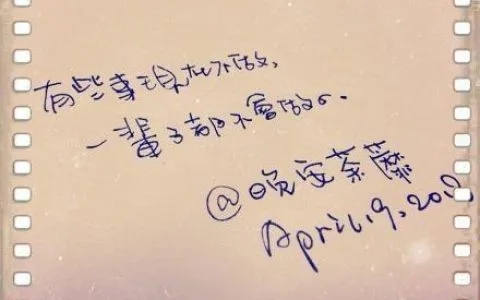 有些事現在不做,
一輩子都不會做了.
@晚安荼蘼
April.9.2012